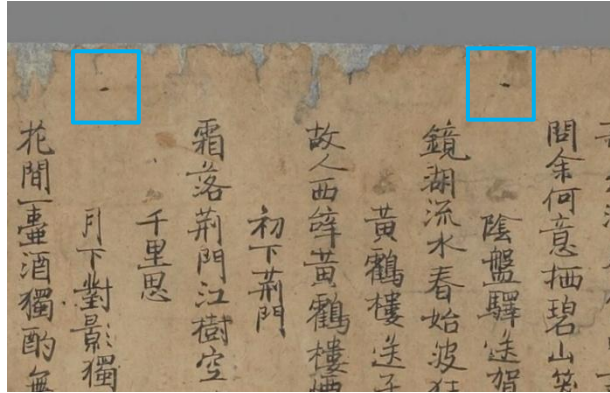 問余何意栖碧山笑
陰盤驛送賀
鏡湖流水春始波狂
黃鶴樓送
故人西辤黃鶴樓
初下荊門
霜落荊門江樹空
千里思
月下對影獨
花間一壺酒獨酌無